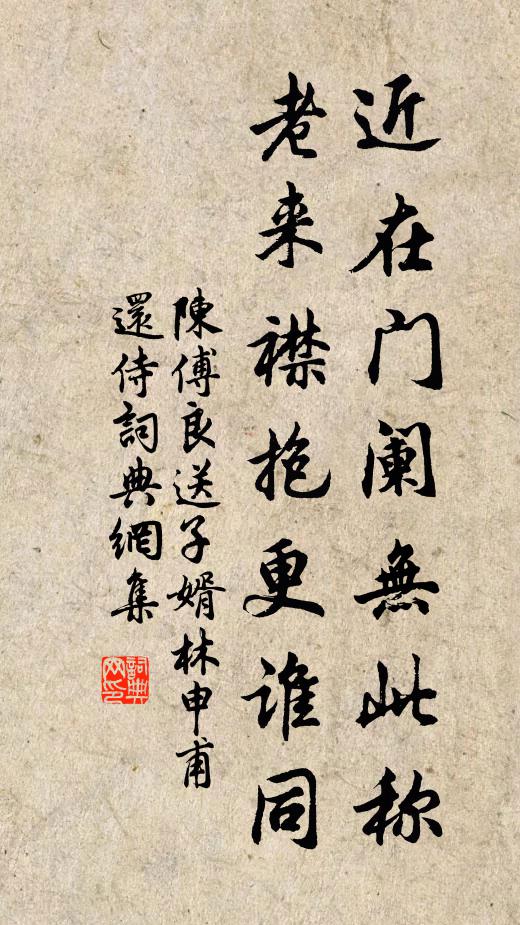 近在门阑無此称
老来襟抱更谁同
陳傅良送子婿林申甫
還侍詞典網集
詞典网印